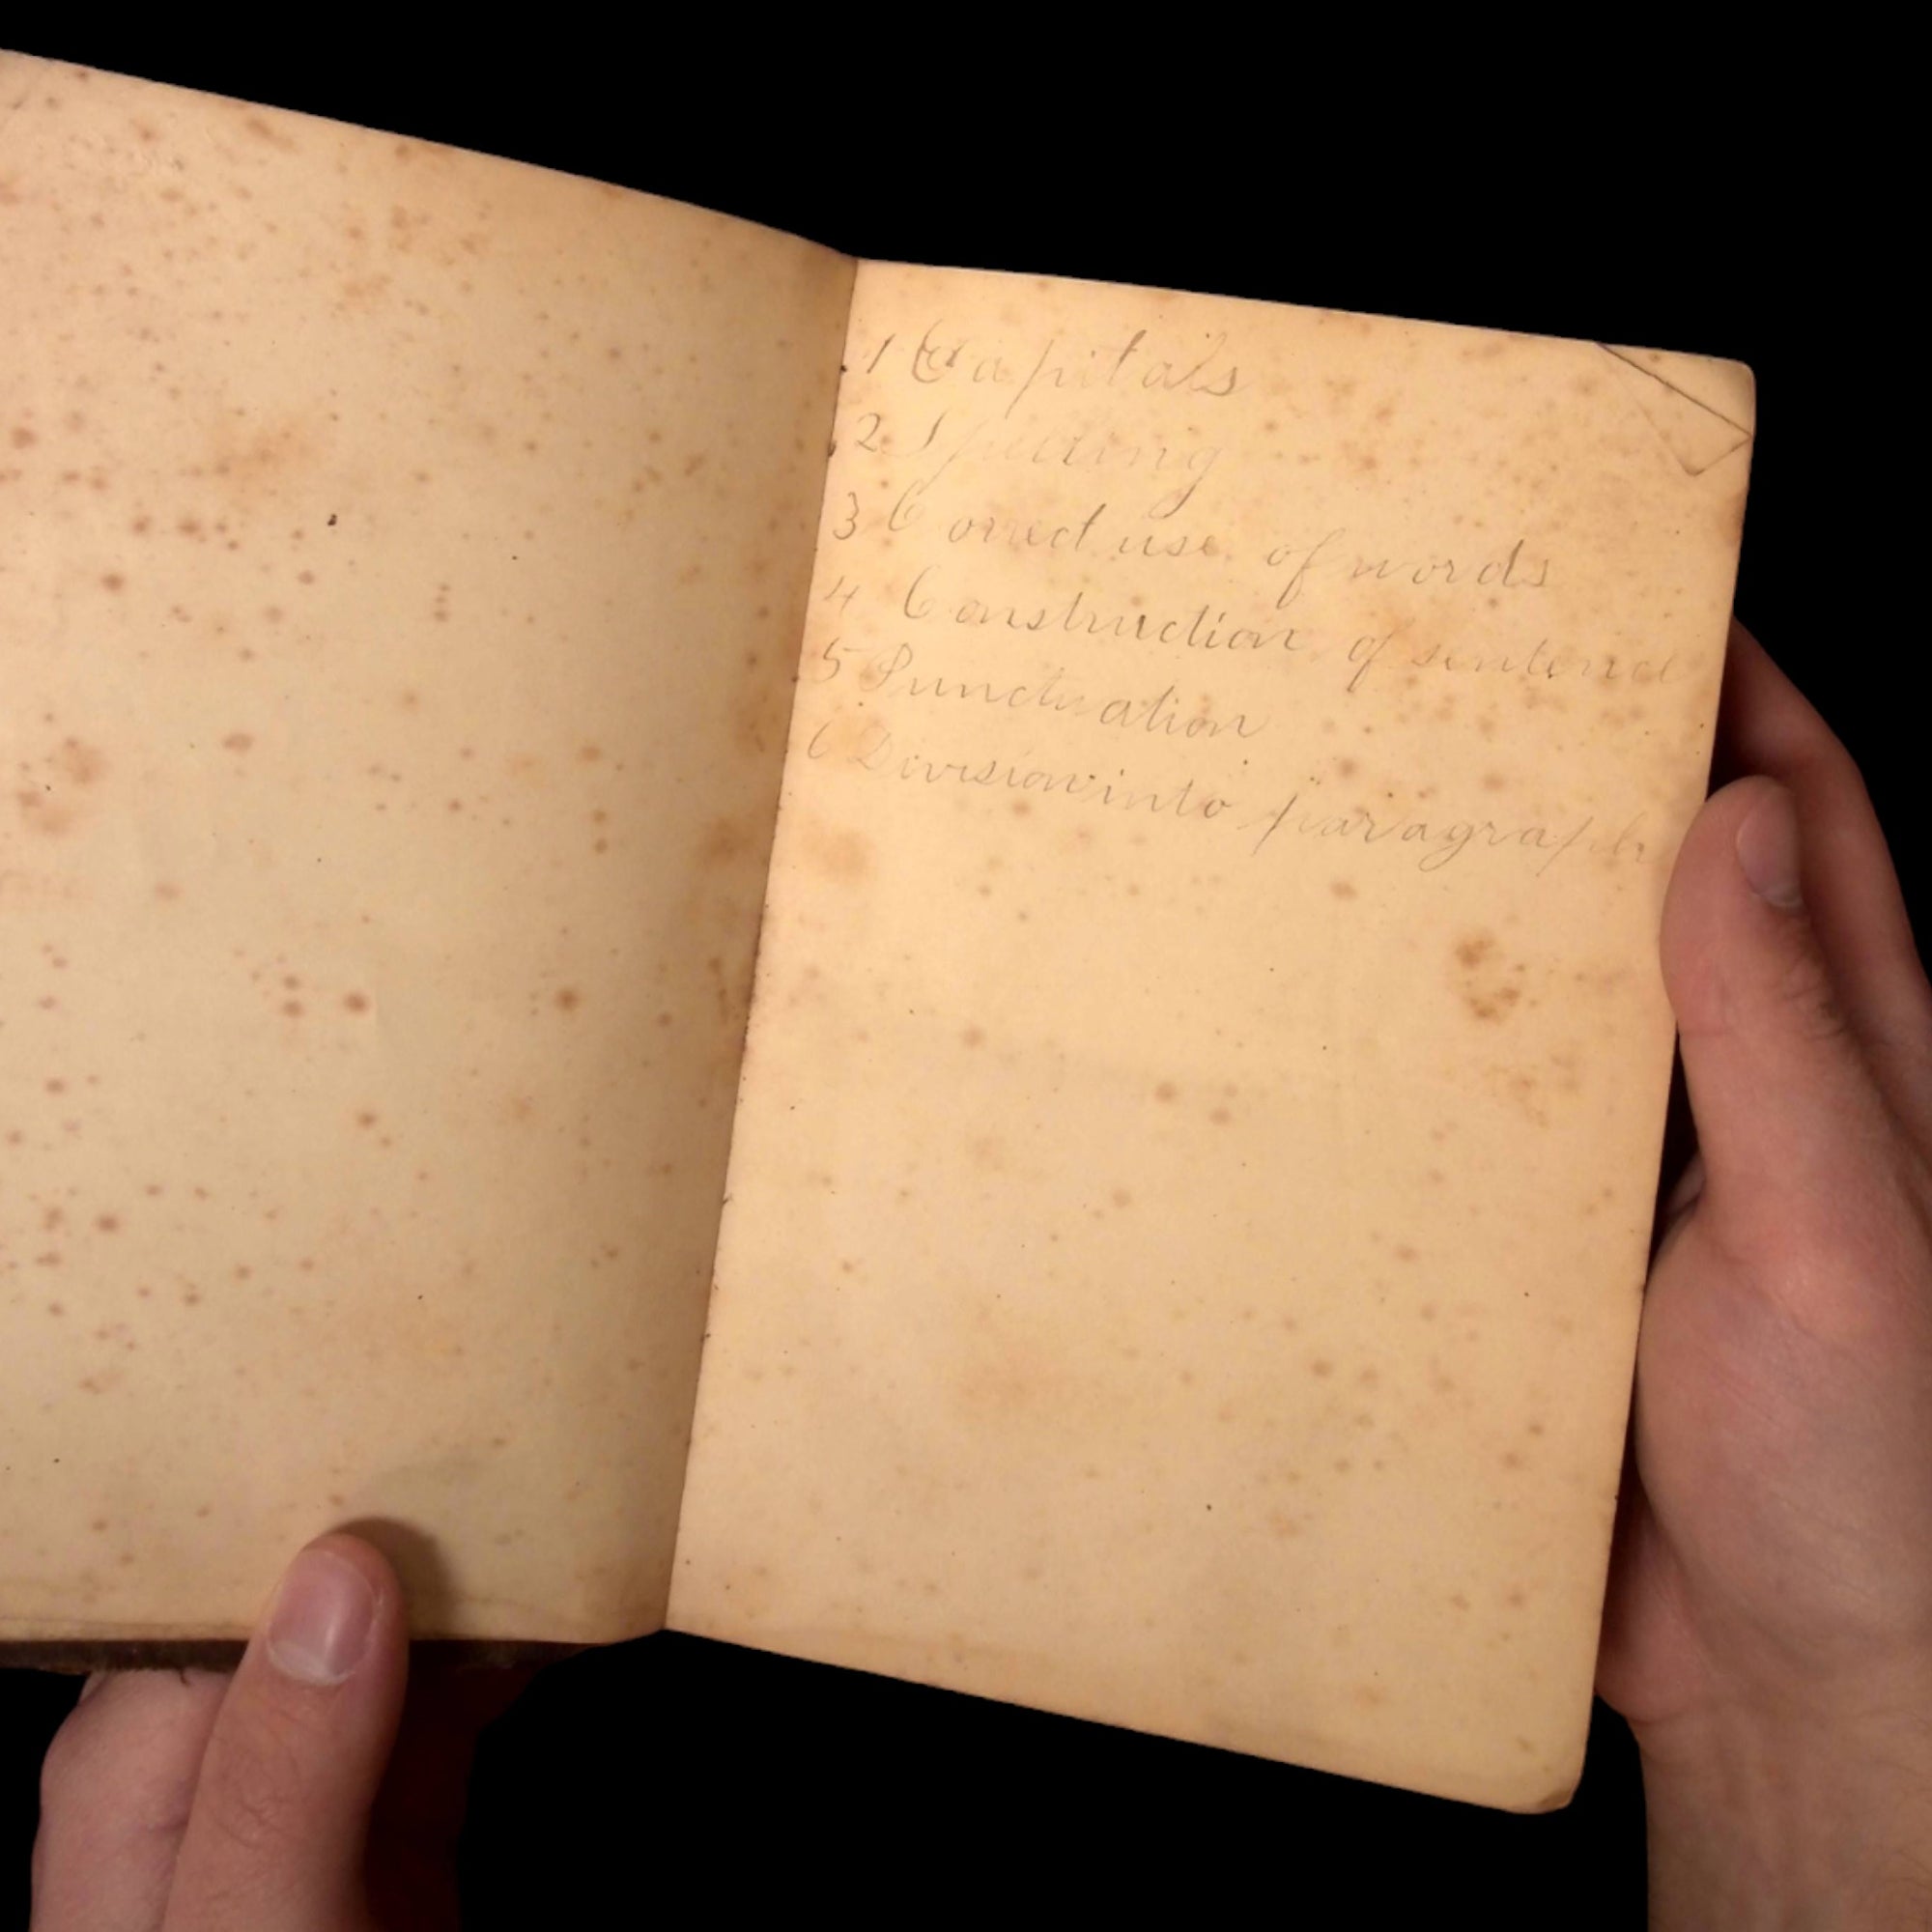 1 Capitals
2 Spelling
3 Correct use of words
4 Construction of sentence
5 Punctuation
6 Division into paragraph